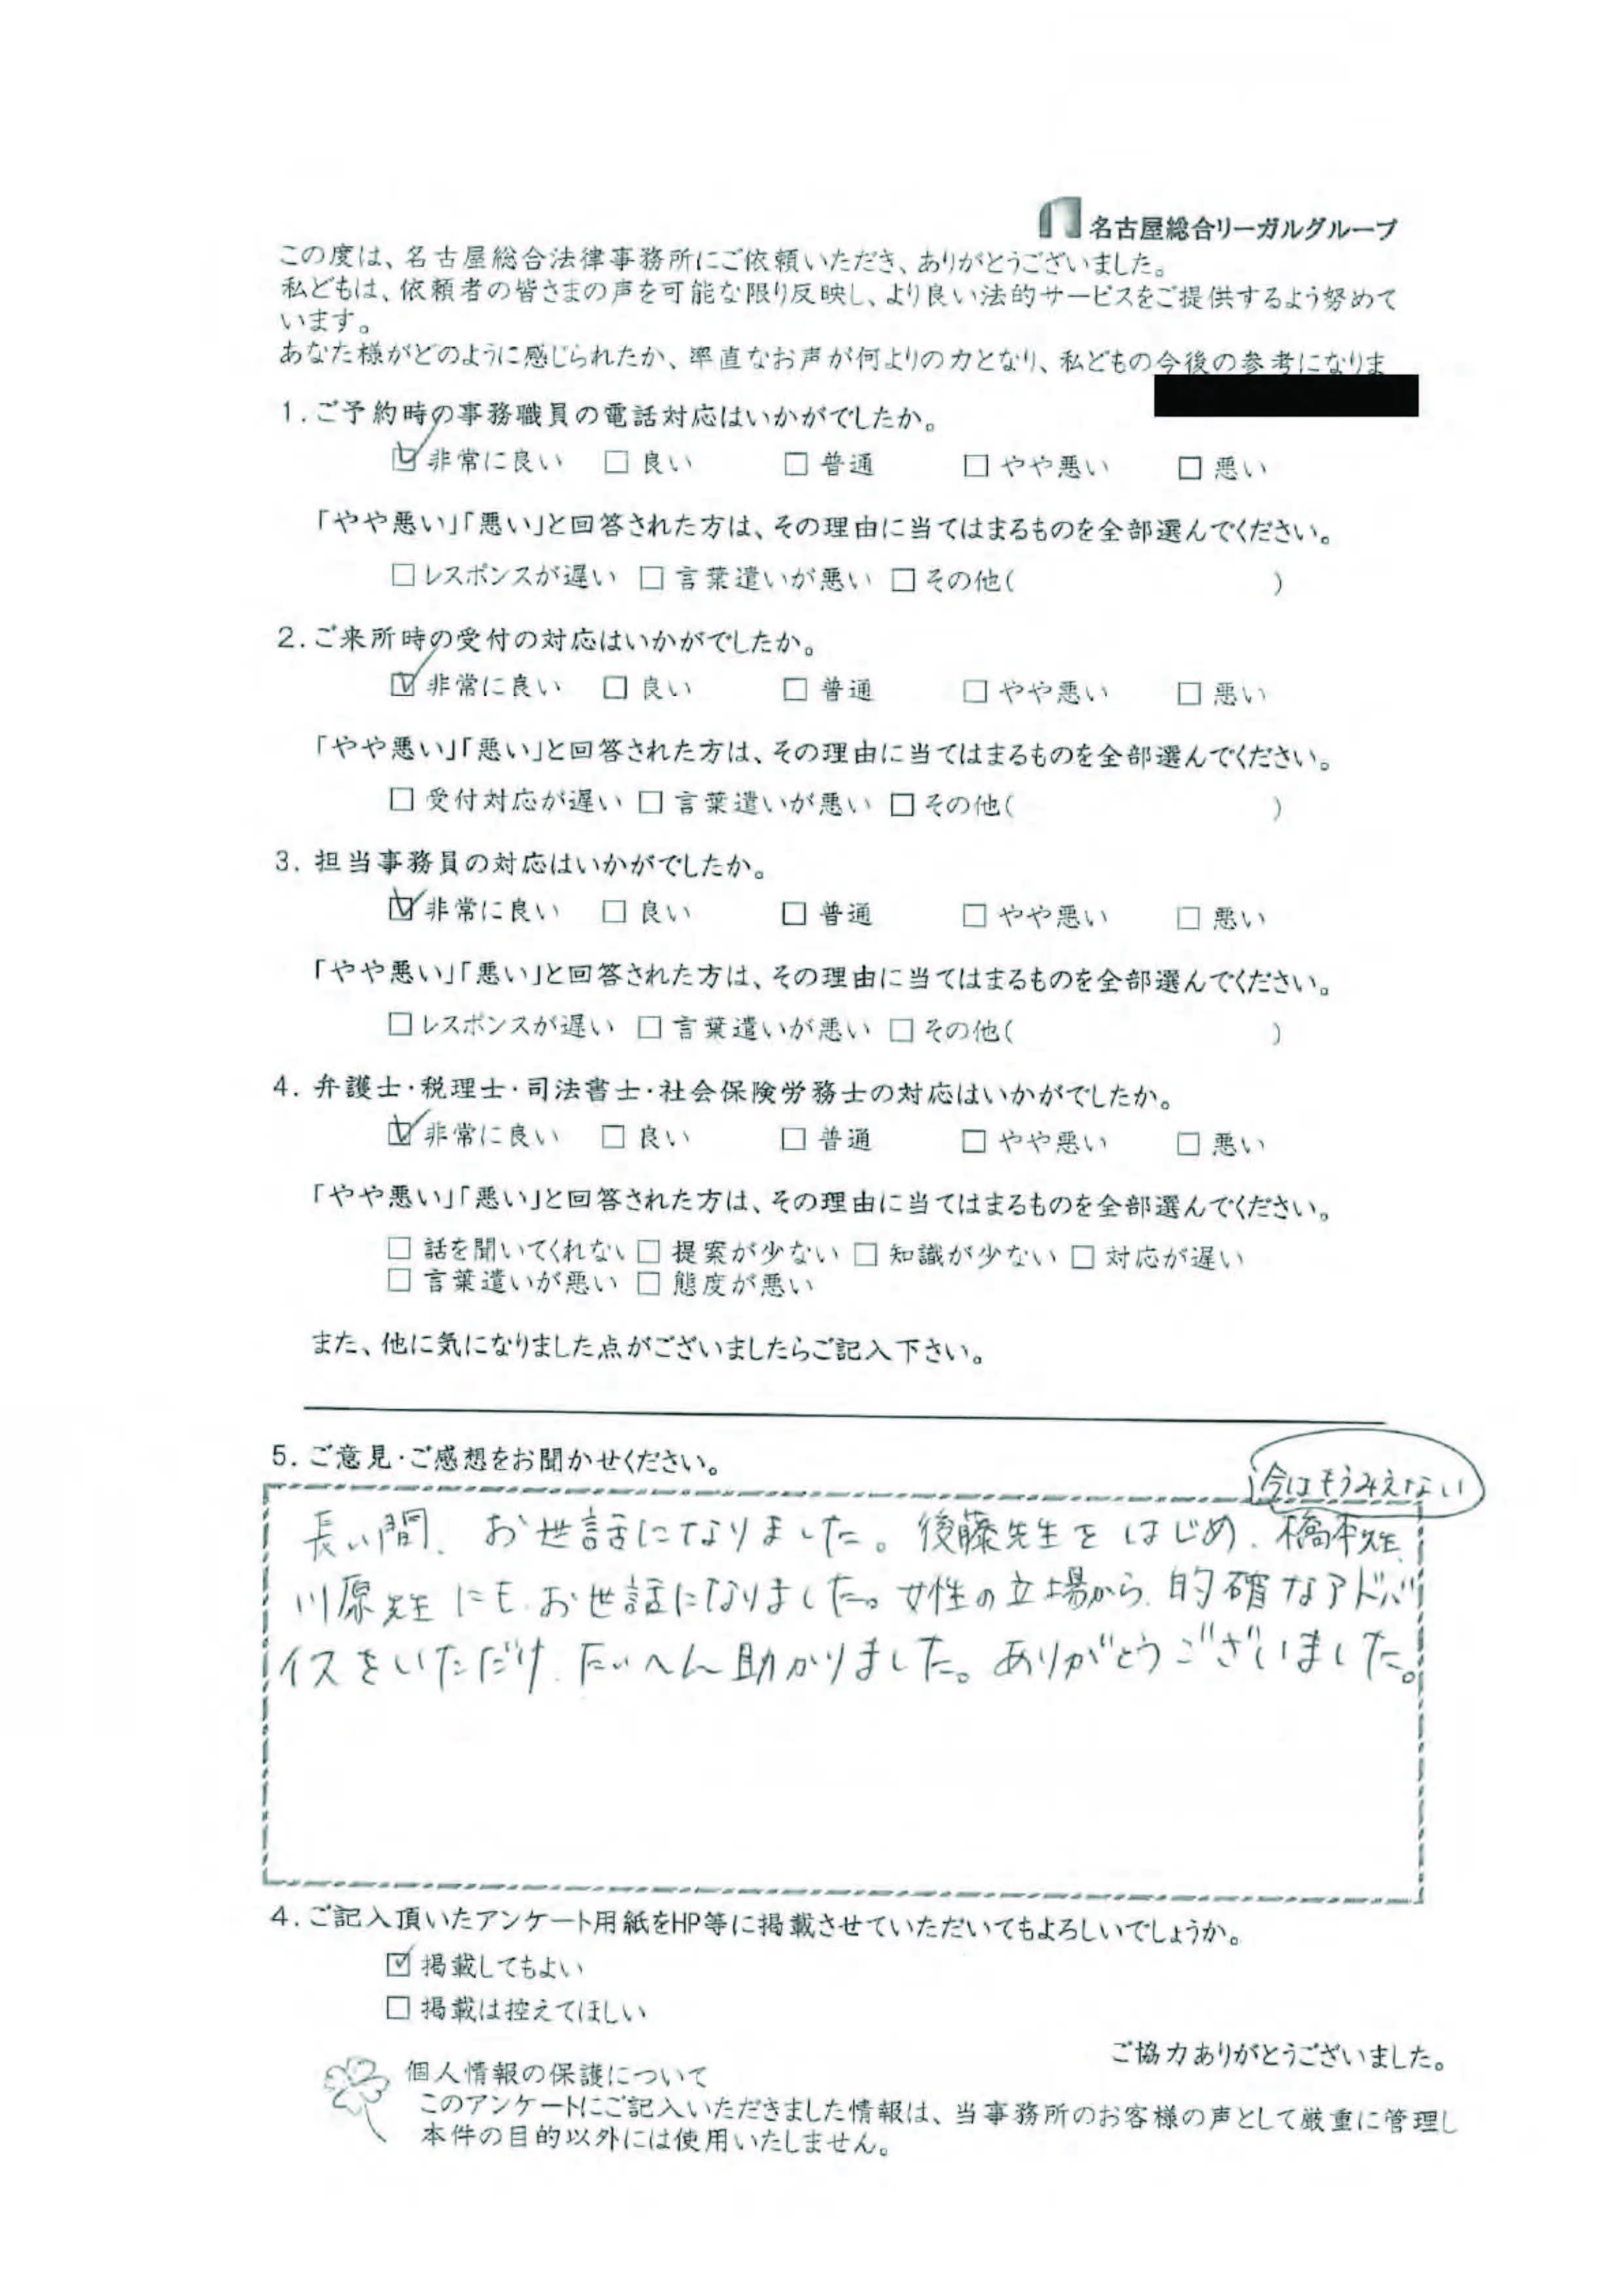 名古屋総合リーガルグループ
この度は、名古屋総合法律事務所にご依頼いただき、ありがとうございました。
私どもは、依頼者の皆さまの声を可能な限り反映し、より良い法的サービスをご提供するよう努めて
います。
あなた様がどのように感じられたか、率直なお声が何よりの力となり、私どもの今後の参考になりま
1.ご予約時の事務職員の電話対応はいかがでしたか。
☑非常に良い □良い □普通 □やや悪い □悪い
「やや悪い」「悪い」と回答された方は、その理由に当てはまるものを全部選んでください。
□レスポンスが遅い □言葉遣いが悪い □その他( )
2.ご来所時の受付の対応はいかがでしたか。
☑非常に良い □良い □普通 □やや悪い □悪い
「やや悪い」「悪い」と回答された方は、その理由に当てはまるものを全部選んでください。
□受付対応が遅い □言葉遣いが悪い □その他( )
3.担当事務員の対応はいかがでしたか。
☑非常に良い □良い □普通 □やや悪い □悪い
「やや悪い」「悪い」と回答された方は、その理由に当てはまるものを全部選んでください。
□レスポンスが遅い □言葉遣いが悪い □その他( )
4.弁護士・税理士・司法書士・社会保険労務士の対応はいかがでしたか。
☑非常に良い □良い □普通 □やや悪い □悪い
「やや悪い」「悪い」と回答された方は、その理由に当てはまるものを全部選んでください。
□話を聞いてくれない □提案が少ない □知識が少ない □対応が遅い
□言葉遣いが悪い □態度が悪い
また、他に気になりました点がございましたらご記入下さい。
5.ご意見・ご感想をお聞かせください。
今はもうみえない
長い間、お世話になりました。後藤先生をはじめ、橋本先生、
川原先生にも、お世話になりました。女性の立場から、的確なアドバ
イスをいただけ、たいへん助かりました。ありがとうございました。
4.ご記入頂いたアンケート用紙をHP等に掲載させていただいてもよろしいでしょうか。
☑掲載してもよい
□掲載は控えてほしい
ご協力ありがとうございました。
個人情報の保護について
このアンケートにご記入いただきました情報は、当事務所のお客様の声として厳重に管理し
本件の目的以外には使用いたしません。